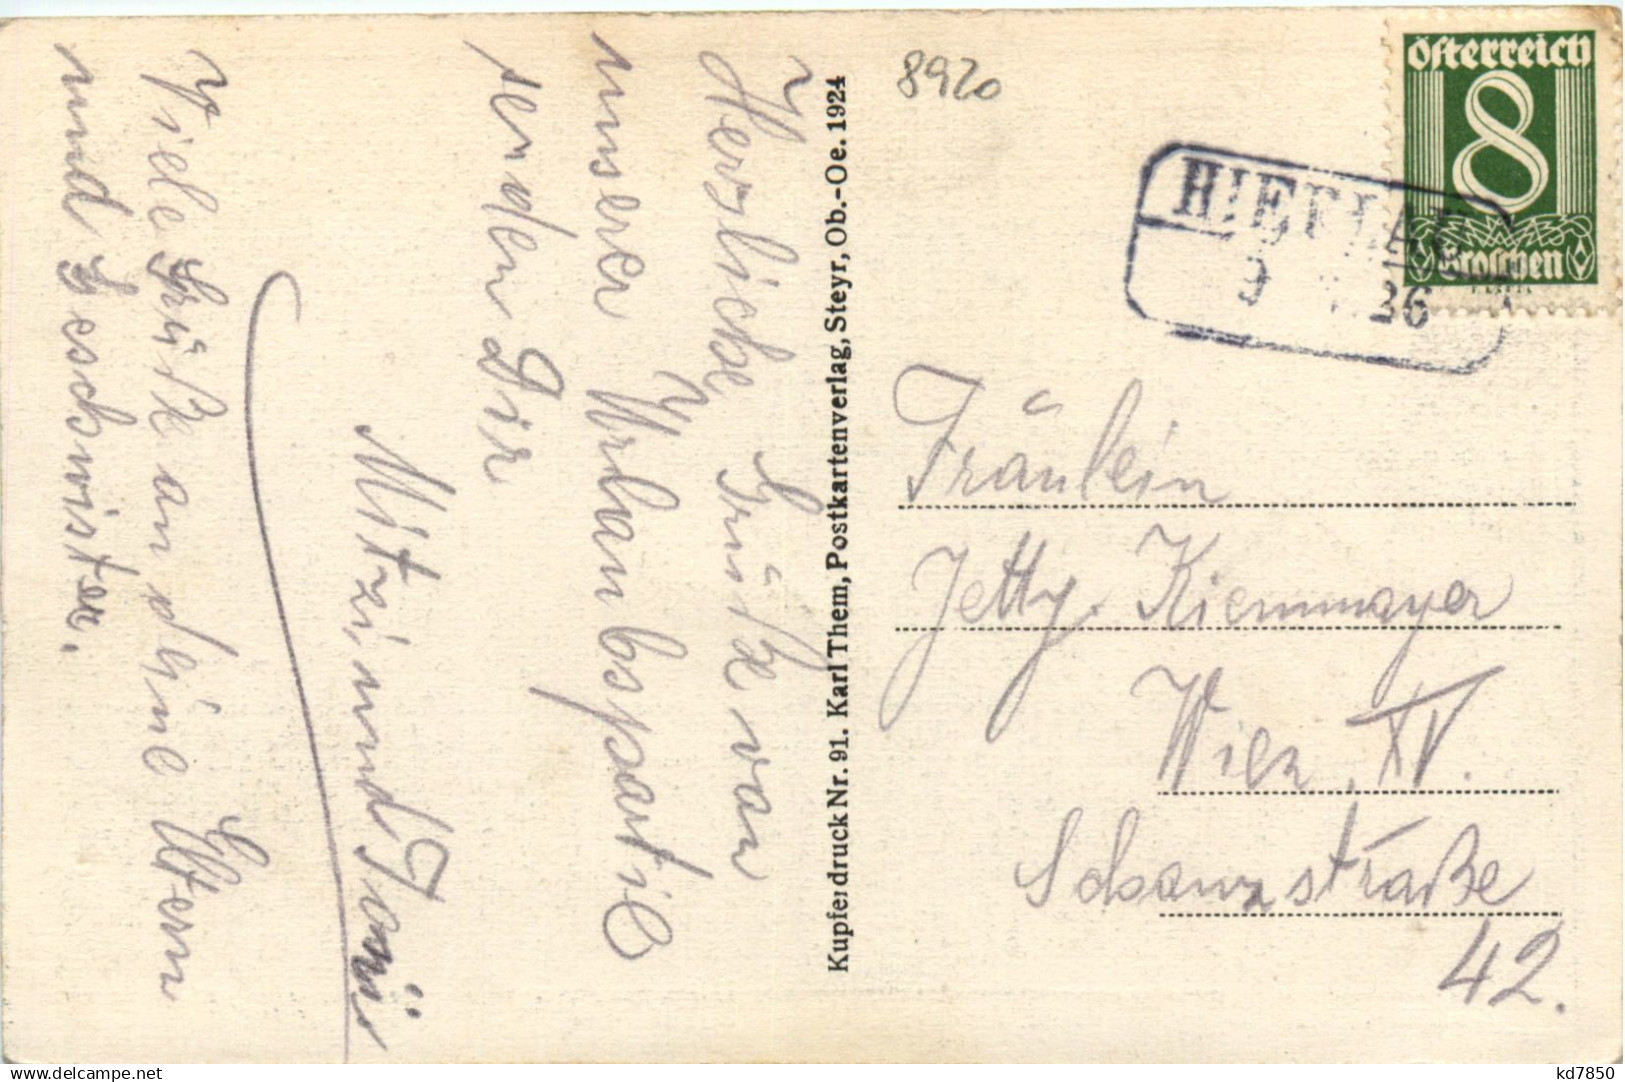 Herzliche Grüße von
unserer Urlaubspartie
senden Dir
Mitzi und Toni
Viele Grüße an deine Eltern
und Geschwister.
Kupferdruck Nr. 91. Karl Them, Postkartenverlag, Steyr, Ob.-Oe. 1924
8920
Österreich
8
Groschen
HIEFLAU
Fräulein
Jetty Kiemmayer
Wien, XV.
Schanzstraße
42.
www.delcampe.net
kd7850